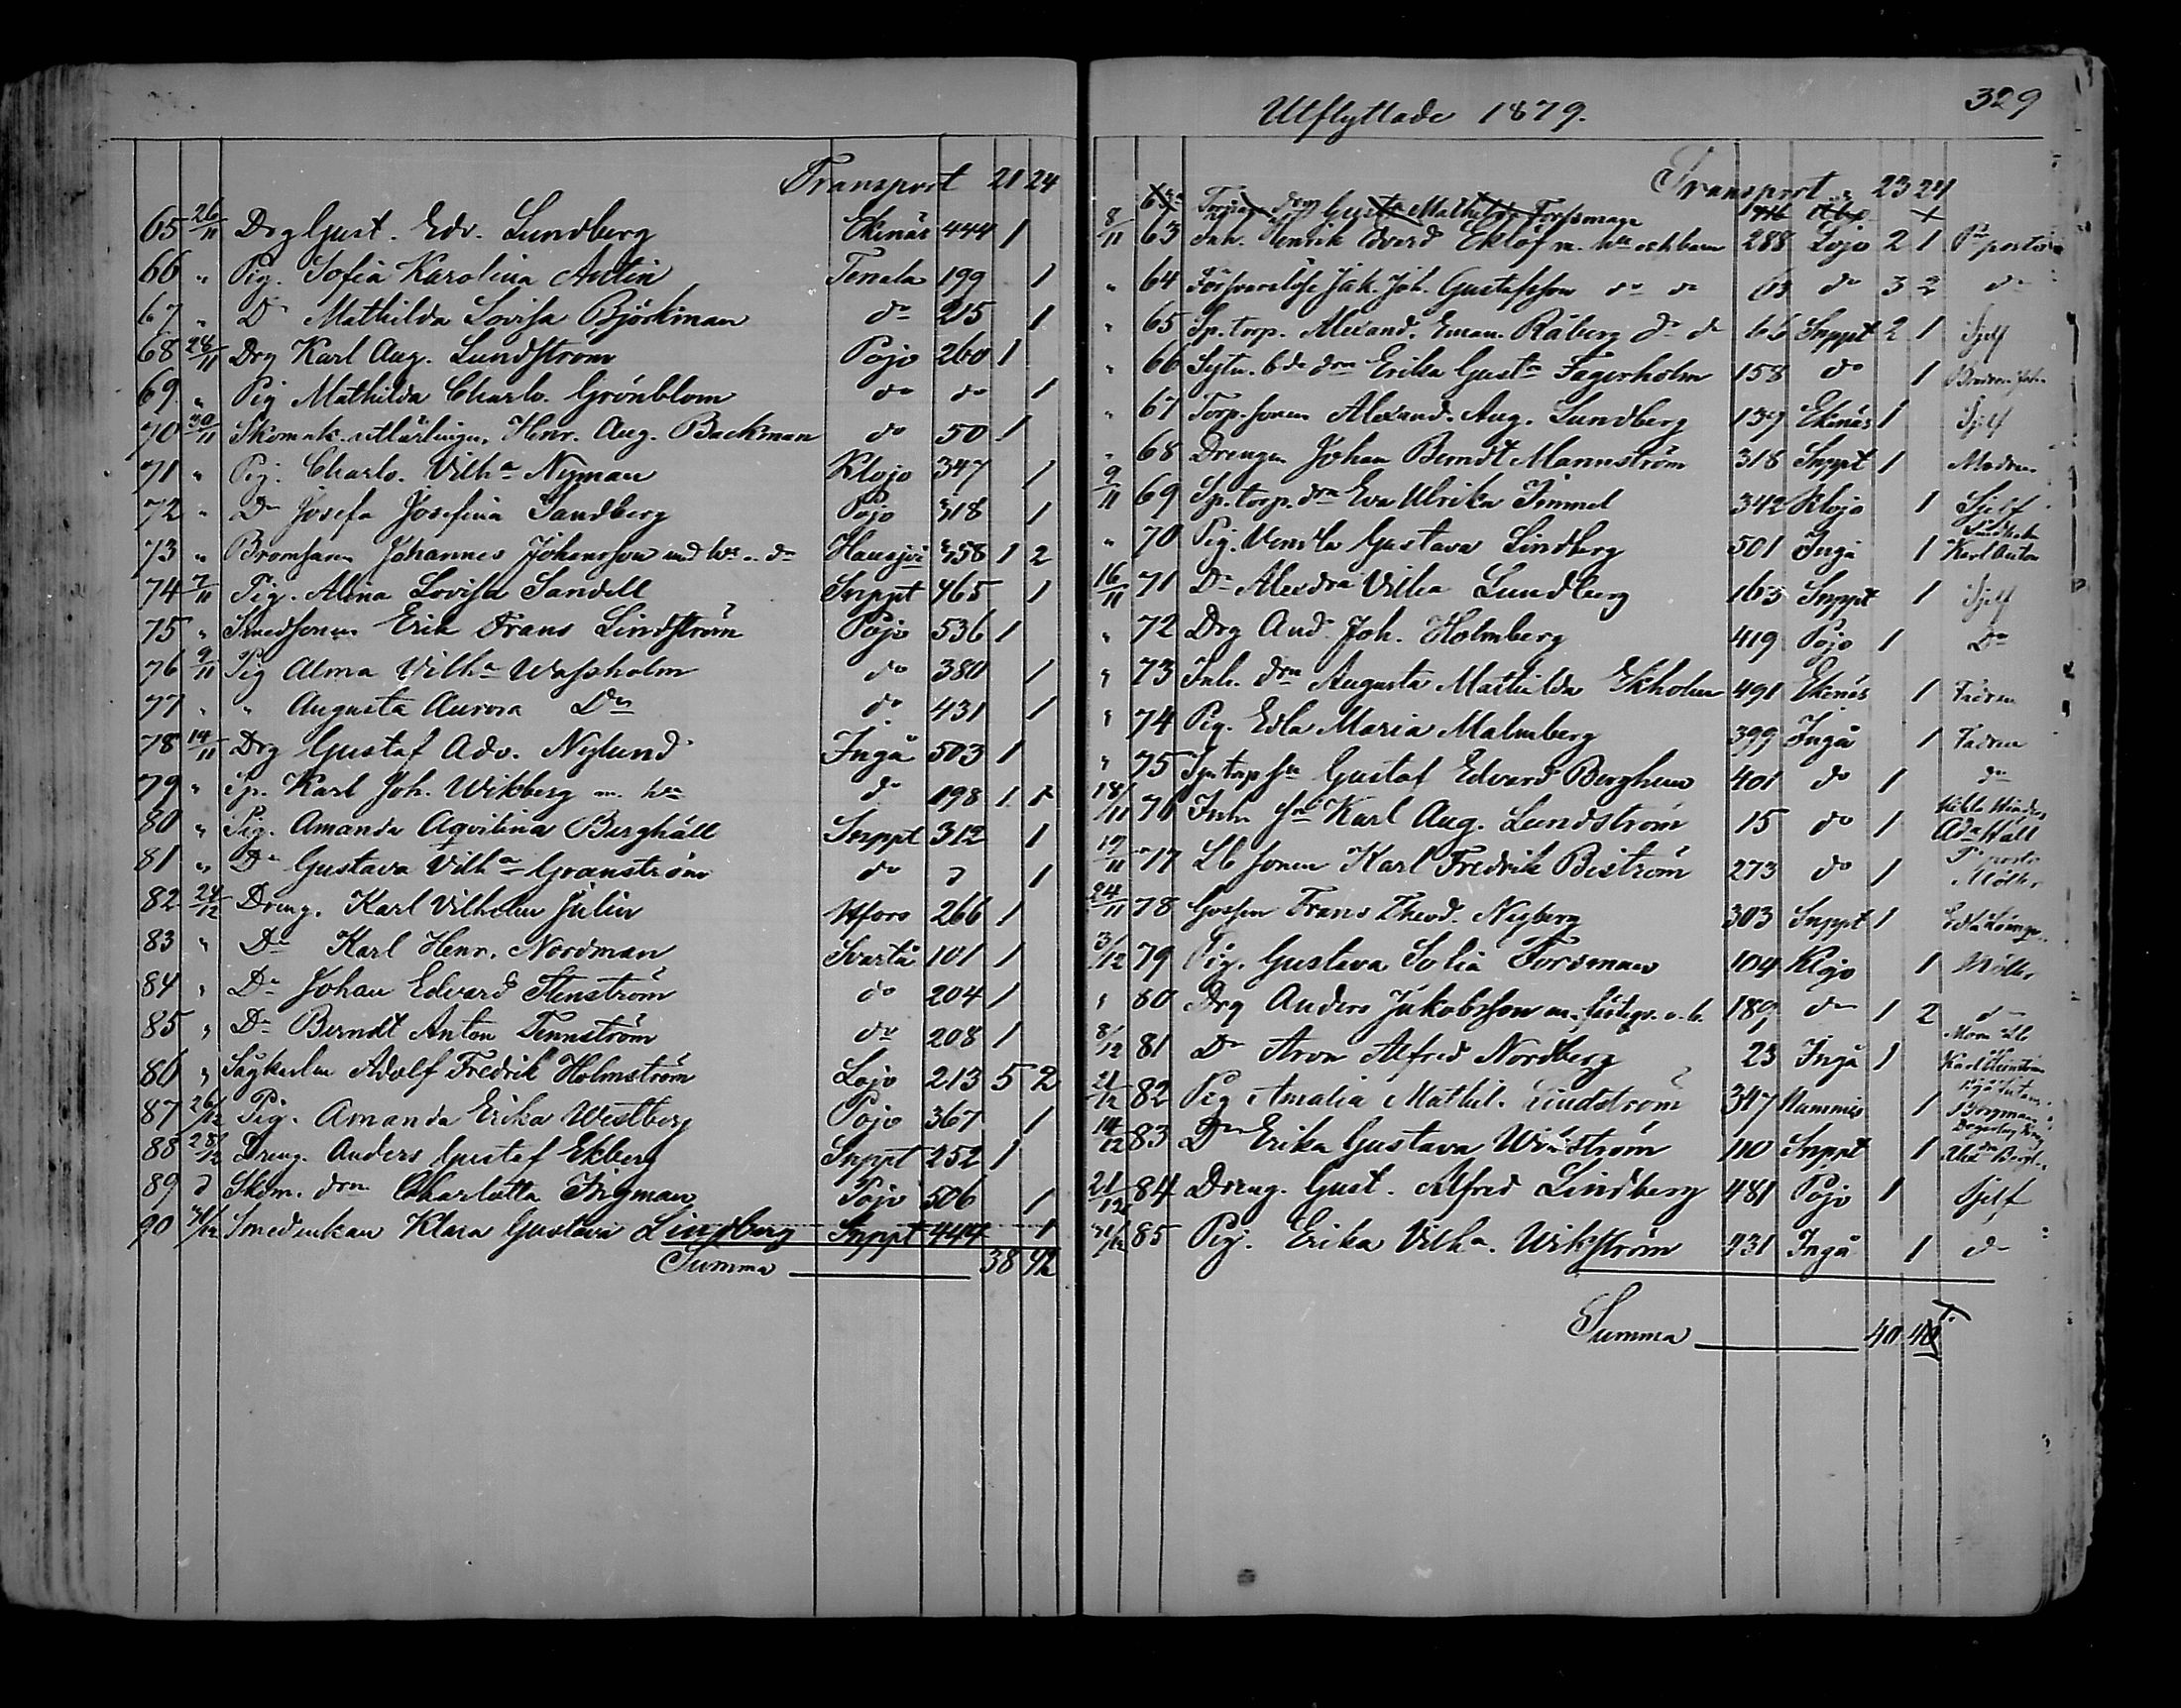 Transport 21 24
65 26/11 Drg Gust. Edv. Lundberg Ekenäs 444 1
66 " Pig. Sofia Karolina Antin Tenala 199 1
67 " Do Mathilda Lovisa Björkman do 215 1
68 28/11 Drg Karl Aug. Lundström Pojo 260 1
69 " Pig Mathilda Charlo. Grönblom do do 1
70 30/11 Henr. Aug. Backman do 50 1
71 " Pig. Charlo. Vilha Nyman Klojo 347 1
72 " Do Josefa Josefina Sandberg Pojo 318 1
73 " Johannes Johansson med hu o. do Hausjä 458 1 2
74 7/11 Pig. Alina Lovisa Sandell Snppt 465 1
75 " Smedsonen Erik Frans Lindström Pojo 536 1
76 9/11 Pig Alma Vilha Wassholm do 380 1
77 " " Augusta Aurora Do do 431 1
78 14/11 Drg Gustaf Adv. Nylund Ingå 503 1
79 " Sp. Karl Joh. Wikberg m. hu do 198 1 1
80 " Pig. Amanda Aqvilina Berghäll Snppt 312 1
81 " Do Gustava Vilha Granström do 1
82 24/12 Dreng. Karl Vilhelm Julin Hfors 266 1
83 " Do Karl Henr. Nordman Svartå 101 1
84 " Do Johan Edvard Stenström do 204 1
85 " Do Berndt Anton Tennström do 208 1
86 " Adolf Fredrik Holmström Lojo 213 5 2
87 26/12 Pig. Amanda Erika Westberg Pojo 367 1
88 28/12 Dreng. Anders Gustaf Ekberg Snppt 252 1
89 Skom. drn Charlotta Ingman Pojo 506 1
90 31/12 Smedenkan Klara Gustava Lindberg Snppt 444 1
Summa 38 42
Utflyttade 1879.
329
Transport 23 24
8/11 63 Inh. Henrik Edvard Eklöf m. hu och barn 288 Lojo 2 1
" 64 Försvarslöse Jak. Joh. Gustafsson do do 63 do 3 2 do
" 65 Sp. torp. Alexand. Eman. Råberg do do 66 Snppt 2 1 Sjelf
" 66 drn Erika Gusta Fagerholm 158 do 1
" 67 Torp. sonen Alexand. Aug. Lundberg 137 Ekenäs 1 Sjelf
" 68 Drengen Johan Berndt Mannström 318 Snppt 1 Modren
9/11 69 Sp. torp. drn Eva Ulrika Immel 342 Klojo 1 Sjelf
" 70 Pig. Vendla Gustava Lindberg 501 Ingå 1 Karl Anton
16/11 71 Do Alexdra Vilha Lundberg 163 Snppt 1 Sjelf
" 72 Drg And. Joh. Holmberg 419 Pojo 1 Do
" 73 Inh. drn Augusta Mathilda Ekholm 491 Ekenäs 1 Fadren
" 74 Pig. Edla Maria Malmberg 399 Ingå 1 Fadren
" 75 Sp. torp sn Gustaf Edvard Berghem 401 do 1 do
18/11 76 Inh. sn Karl Aug. Lundström 15 do 1
19/11 77 Lb sonen Karl Fredrik Biström 273 do 1
24/11 78 Gossen Frans Theod. Nyberg 303 Snppt 1
3/12 79 Pig. Gustava Sofia Forsman 104 Klojo 1
" 80 Drg Anders Jakobsson 189 do 1 2
8/12 81 Do Aron Alfred Nordberg 23 Ingå 1
21/12 82 Pig Amalia Mathil. Lindström 347 Nummis 1
14/12 83 Do Erika Gustava Winström 110 Snppt 1
21/12 84 Dreng. Gust. Alfred Lindberg 481 Pojo 1 Sjelf
31/12 85 Pig. Erika Vilha. Wikström 231 Ingå 1 do
Summa 40 40